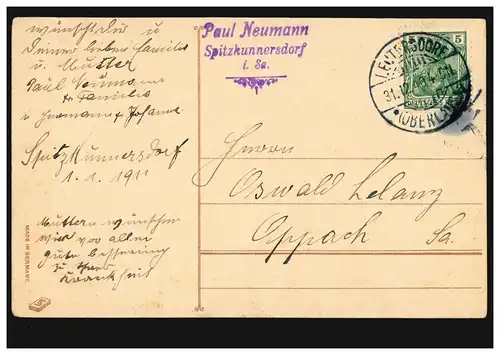 wünscht dir u
Deiner lieben Familie
u. Mutter
Paul Neumann
u. Familie
u Hermann u Johanne
Spitzkunnersdorf
1. 1. 1911
Muttern wünschen
wir vor allen
gute besserung
zu ihrer
Krankheit
MADE IN GERMANY.
Paul Neumann
Spitzkunnersdorf
i. Sa.
5
LEUTERSDORF
31.12.
(OBERLAUS
Herrn
Oswald Lelanz
Oppach Sa.